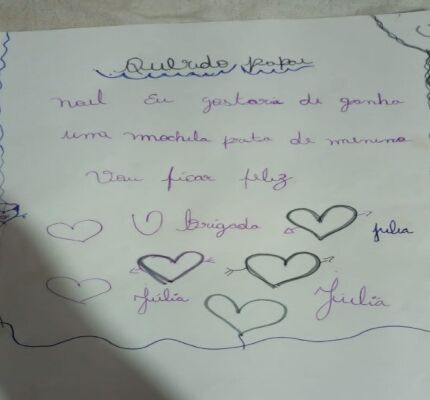 Querido papai
noel Eu gostaria de ganha
uma mochila preta de menino
Vou ficar feliz
brigada julia
Júlia Júlia